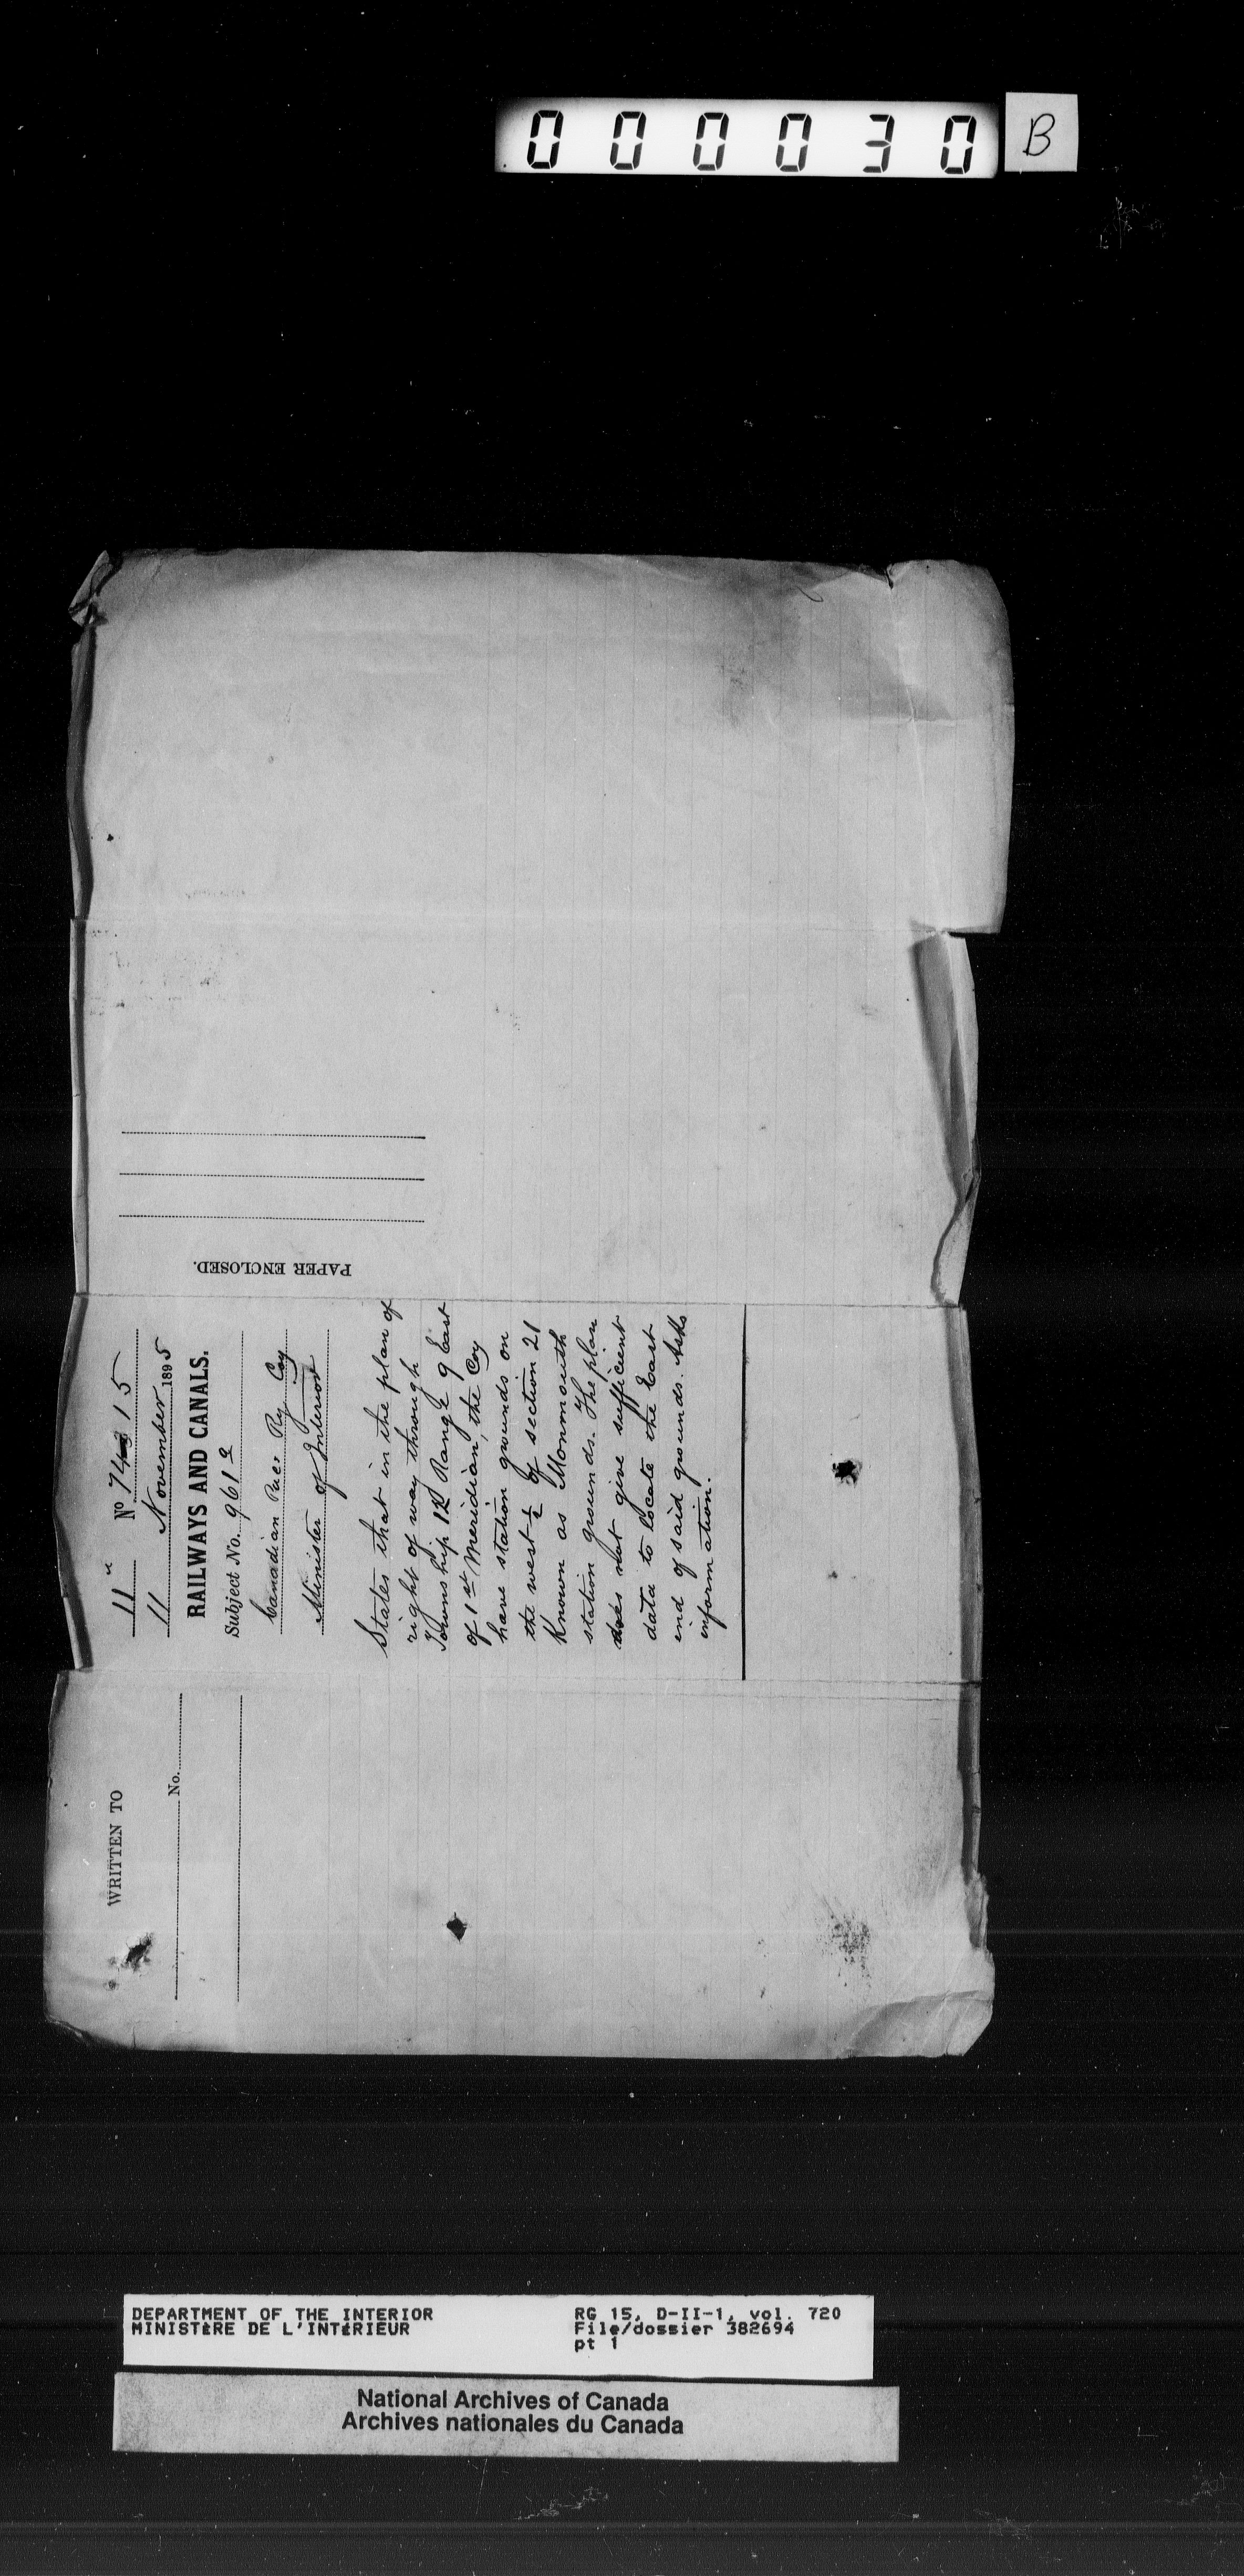 000030
B
11" No 74315
11 November 1895
RAILWAYS AND CANALS.
Subject No. 961 a
Canadian Pac. Ry Coy
Minister of Interior
States that in the plan of
right of way through
Township 12 Range 9 East
of 1st Meridian, the Coy
have station grounds on
the west ½ of section 21
Known as Monmouth
station grounds. The plan
does not give sufficient
data to locate the East
end of said grounds. Asks
information.
PAPER ENCLOSED.
WRITTEN TO
No.
DEPARTMENT OF THE INTERIOR
MINISTÈRE DE L'INTÉRIEUR
RG 15, D-II-1, vol. 720
File/dossier 382694
pt 1
National Archives of Canada
Archives nationales du Canada